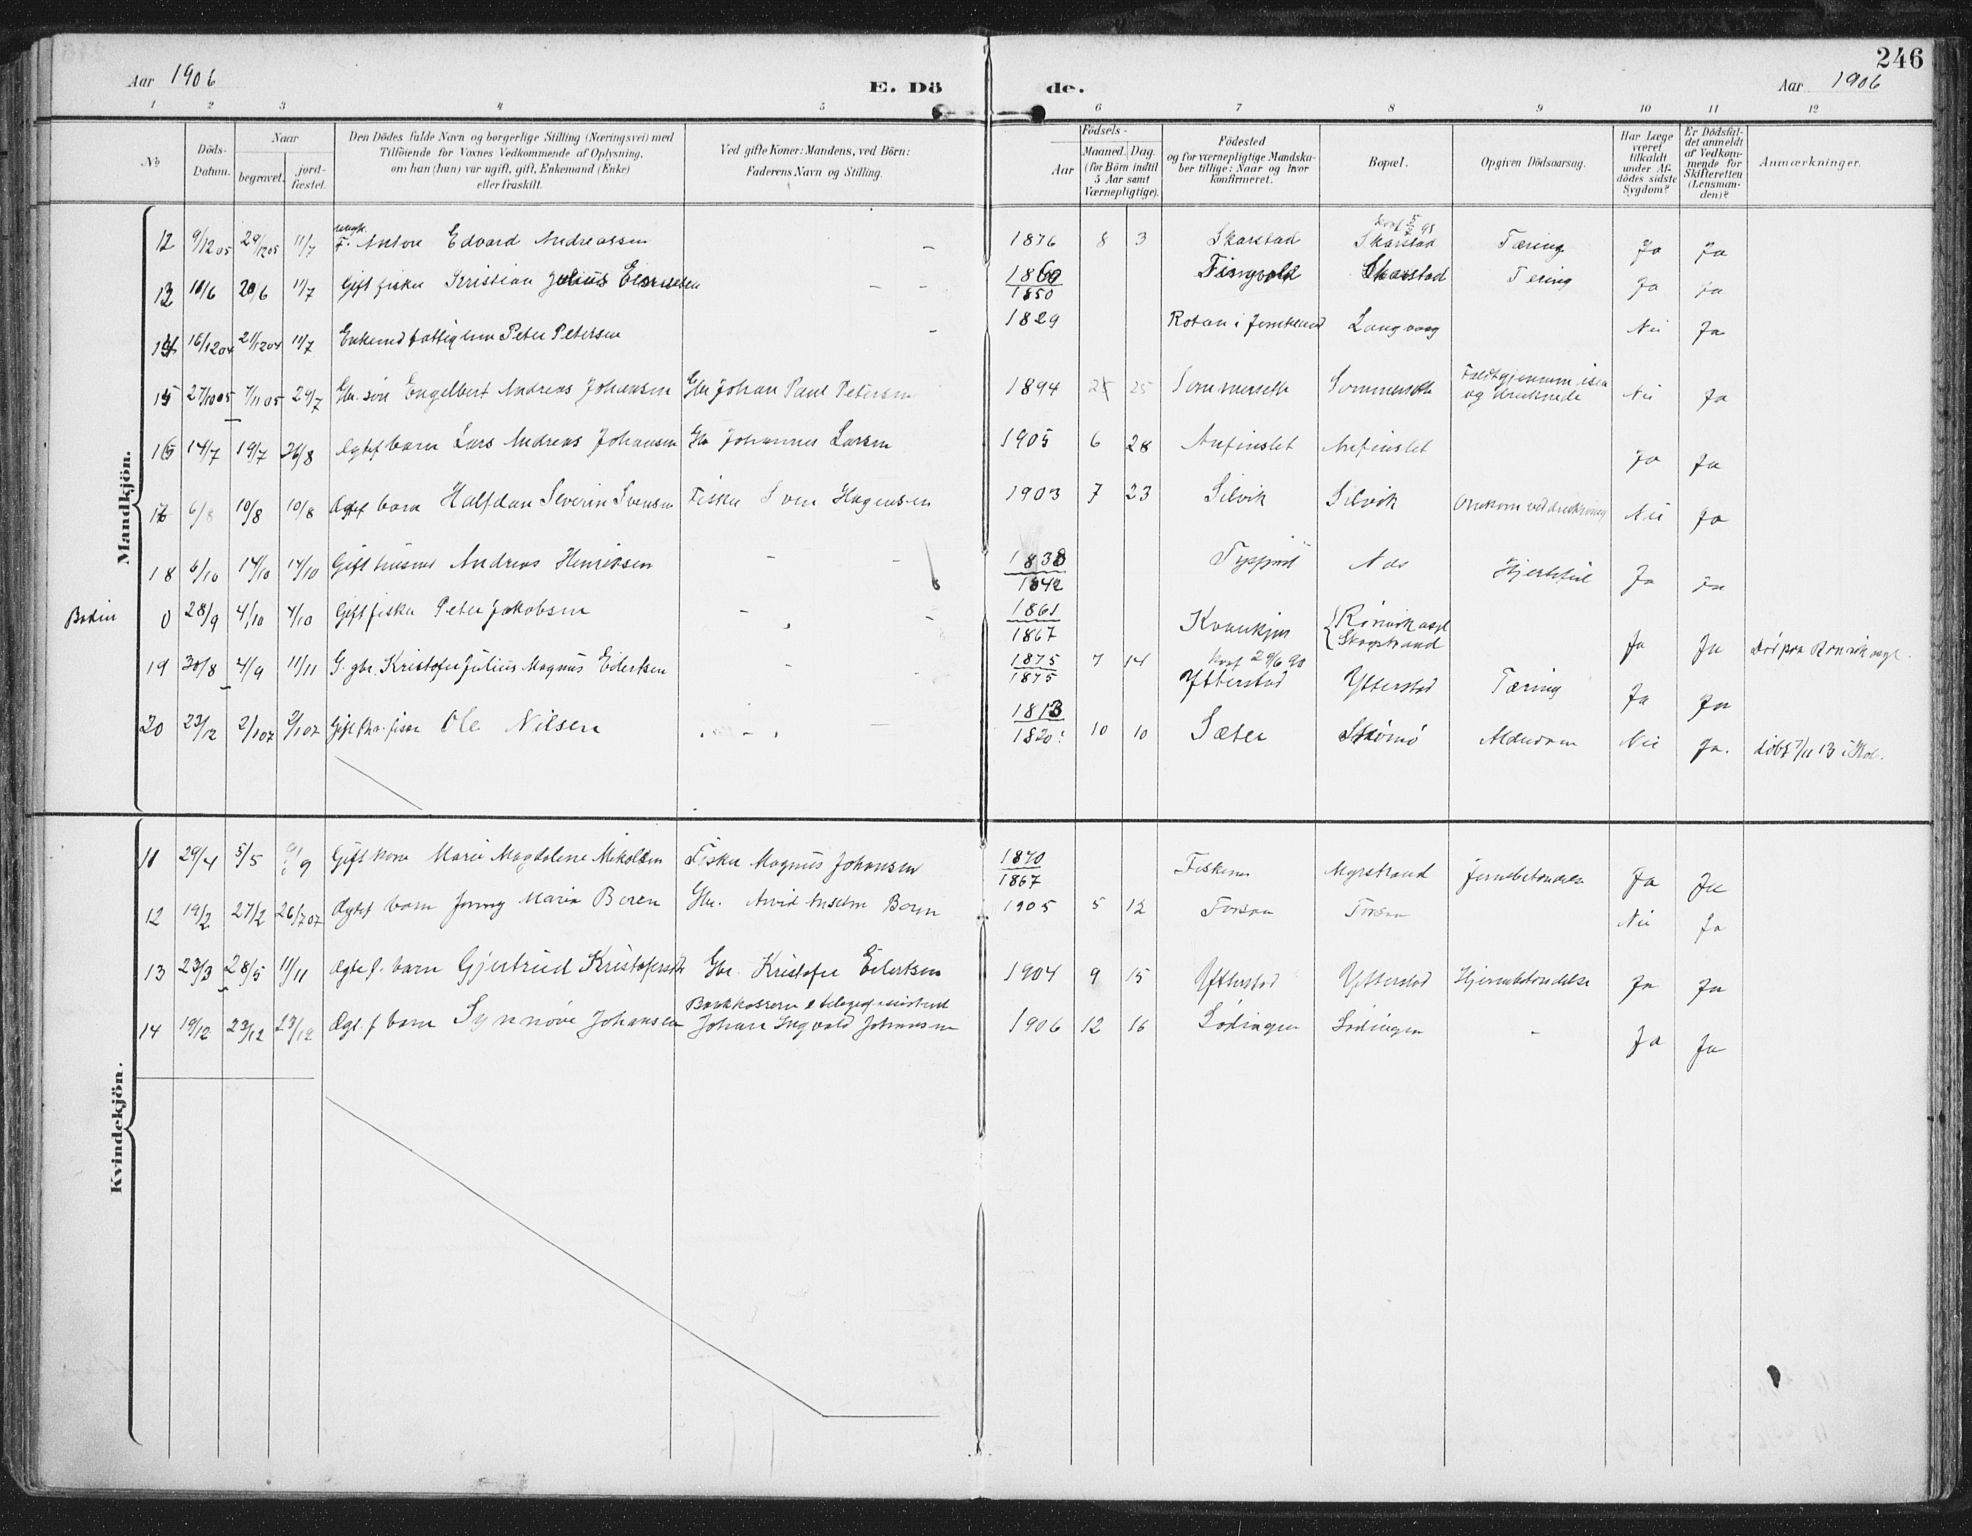 246
Aar 1906
E. Dö
de.
Aar 1906
1 2 3 4 5 6 7 8 9 10 11 12
No
Döds-Datum.
Naar
begravet.
jord-fæstet.
Den Dödes fulde Navn og borgerlige Stilling (Næringsvei) med
Tilföiende for Voxnes Vedkommende af Oplysning,
om han (hun) var ugift, gift, Enkemand (Enke)
eller fraskilt.
Ved gifte Koner: Mandens, ved Börn:
Faderens Navn og Stilling.
Födsels-
Aar
Maaned. Dag.
(for Börn indtil
5 Aar samt
Værnepligtige).
Födested
og for værnepligtige Mandska-
ber tillige: Naar og hvor
konfirmeret.
Bopæl.
Opgiven Dödsaarsag.
Har Læge
været
tilkaldt
under Af-
dödes sidste
Sygdom?
Er Dödsfal-
det anmeldt
af Vedkom-
mende for
Skifteretten
(Lensman-
den)?
Anmærkninger.
Mandkjön.
12 9/12 05 29/12 05 11/7 F. Antore Edvard Andreassen – 1876 8 3 Skarstad Skarstad Tæring Ja Ja
13 10/6 20/6 11/7 Gift fisker Kristian Julius – – 1860 1850 Skarstad Tæring Ja Ja
14 16/12 04 21/12 04 11/7 Enkemd fattiglem Peter Petersen – 1829 Langvaag Nei Ja
15 27/10 05 7/11 05 29/7 Gbr. søn Engelbert Andreas Johansen Gbr Johan Paul Petersen 1894 25 Sommersette Sommersette og druknede Nei Ja
16 14/7 19/7 26/8 Ægtef barn Lars Andreas Johansen Gbr Johannes Larsen 1905 6 28 Anfinslet Anfinslet Ja Ja
17 6/8 10/8 10/8 Ægtef barn Halfdan Severin Svensen Fisker Sven Hagensen 1903 7 23 Silvik Silvik Nei Ja
18 6/10 14/10 14/10 Gift husmd Andreas Henriksen – – 1838 1842 Tysfjord Nes Hjertefeil Ja Ja
Bodin 0 28/9 4/10 4/10 Gift fisker Peter Jakobsen – – 1861 1867 Rönvik asyl Skogstrand Ja Ja Död paa Rönvik asyl.
19 30/8 4/9 11/11 G. gbr. Kristofer Julius Magnus Eilertsen – 1875 1875 7 14 Konf 29/6 90 Ytterstad Ytterstad Tæring Ja Ja
20 23/12 2/1 07 2/1 07 Ole Nilsen – 1813 1820 10 10 Sæter Alderdom Nei Ja.
Kvindekjön.
11 29/4 5/5 Gift kone Marie Magdalene Nikolsen Fisker Magnus Johansen 1870 1867 Myrstrand Ja Ja
12 19/2 27/2 26/7 07 Ægtef barn Jenny Marie Boren Gbr. Arvid Anselm Boren 1905 5 12 Forsaa Forsaa Nei Ja
13 23/3 28/5 11/11 Ægtef. barn Gjertrud Gbr. Kristofer Eilertsen 1904 9 15 Ytterstad Ytterstad Hjernebetændelse Ja Ja
14 19/12 23/12 23/12 Ægt. f barn Synnöve Johansen Johan Ingvald Johansen 1906 12 16 Lödingen Lödingen – Ja Ja